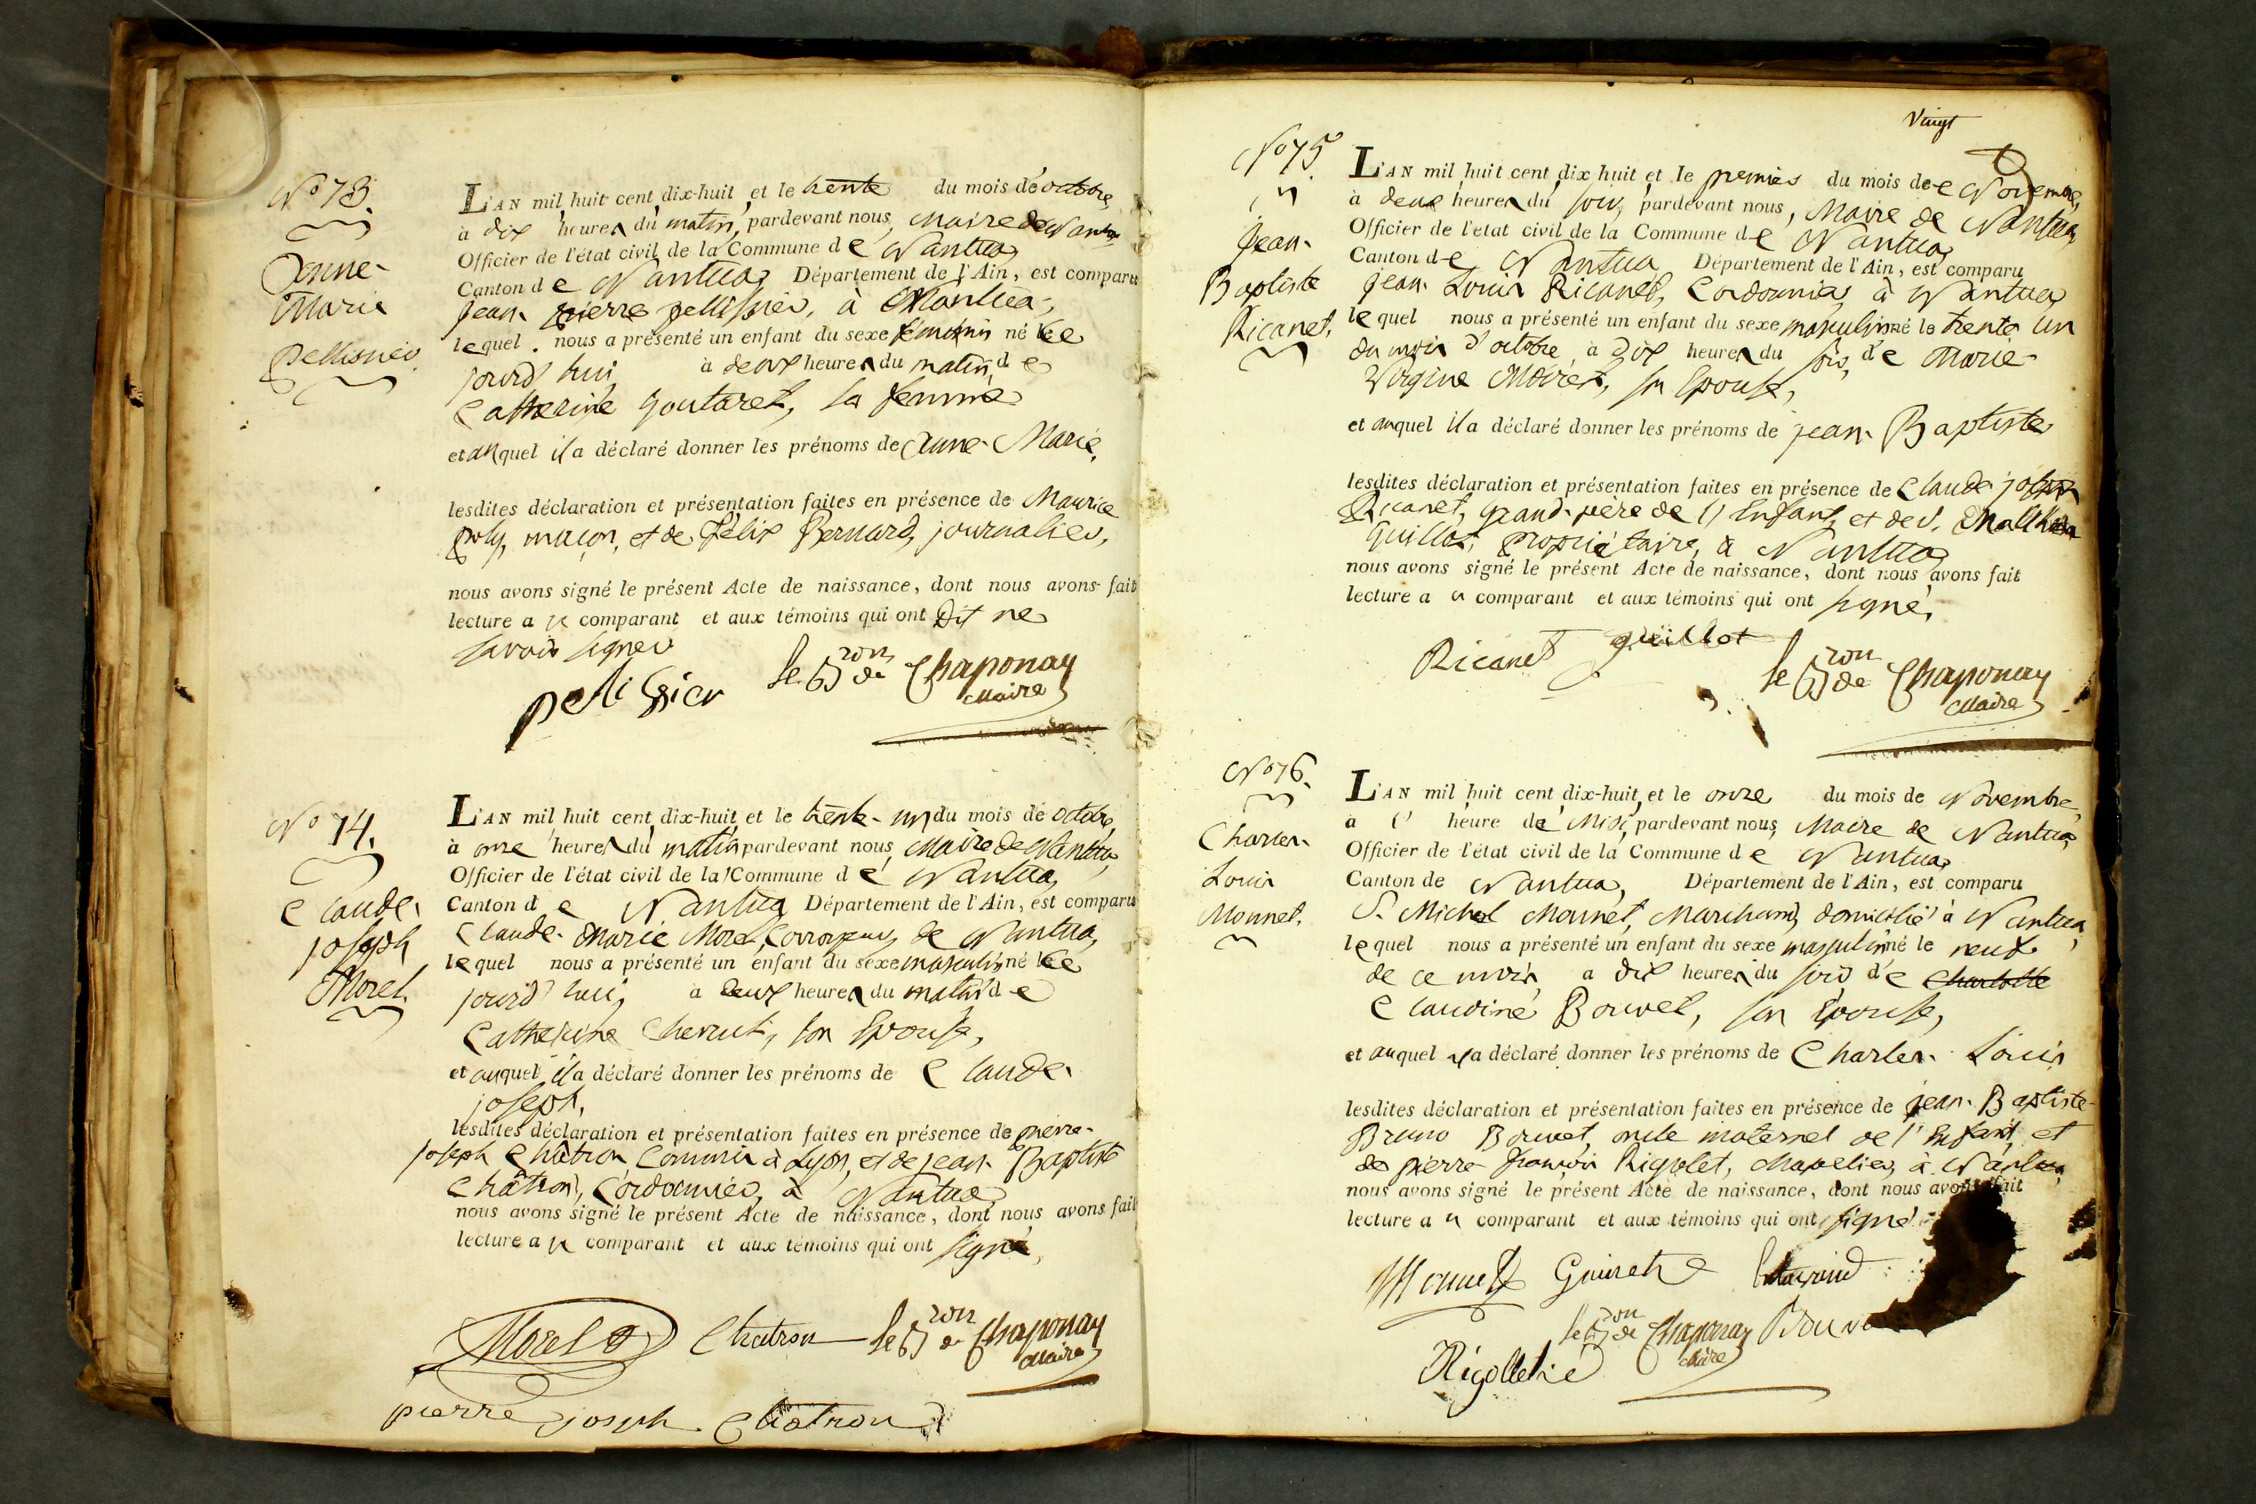 No 73.
Anne-
Marie
Pellissier.
L'AN mil huit cent dix-huit et le trente du mois de octobre,
à dix heures du matin, pardevant nous, Maire de Nantua
Officier de l'état civil de la Commune de Nantua,
Canton de Nantua, Département de l'Ain, est comparu
jean pierre pellissier, à Nantua,
lequel nous a présenté un enfant du sexe feminin né ce
jourd'hui, à deux heures du matin, de
Catherine Goutaret, sa femme
et auquel il a déclaré donner les prénoms de Anne-Marie,
lesdites déclaration et présentation faites en présence de Maurice
poly, maçon, et de Félix Bernard, journalier,
nous avons signé le présent Acte de naissance, dont nous avons fait
lecture a u comparant et aux témoins qui ont dit ne
savoir signer
pelissier le Bron de Chaponay
Maire
No 74.
Claude-
joseph
Morel.
L'AN mil huit cent dix-huit et le trente-un du mois de octobre,
à onze heures du matin pardevant nous, Maire de Nantua,
Officier de l'état civil de la Commune de Nantua,
Canton de Nantua Département de l'Ain, est comparu
Claude-Marie Morel, Corroyeur, de Nantua,
lequel nous a présenté un enfant du sexe masculin né ce
jourd'hui, à deux heures du matin de
Catherine Chenut, son Epouse,
et auquel il a déclaré donner les prénoms de Claude-
joseph,
lesdites déclaration et présentation faites en présence de pierre-
joseph Châtron Commis à Lyon, et de jean-Baptiste
Châtron, Cordonnier, à Nantua,
nous avons signé le présent Acte de naissance, dont nous avons fait
lecture a u comparant et aux témoins qui ont signé,
Morel Chatron le Bron de Chaponay
Maire
pierre joseph Chatron
Vingt
No 75.
jean-
Baptiste
Ricanet.
L'AN mil huit cent dix huit et le premier du mois de Novembre,
à deux heures du soir, pardevant nous, Maire de Nantua
Officier de l'état civil de la Commune de Nantua,
Canton de Nantua Département de l'Ain, est comparu
jean-Louis Ricanet, Cordonnier, à Nantua
lequel nous a présenté un enfant du sexe masculin né le trente un
du mois d'octobre, à dix heures du soir, de Marie-
Virgine Moiret, son Epouse,
et auquel il a déclaré donner les prénoms de jean-Baptiste
lesdites déclaration et présentation faites en présence de Claude-joseph
Ricanet, grand-père de l'Enfant, et de S. Mathieu
Guillot, propriétaire, à Nantua
nous avons signé le présent Acte de naissance, dont nous avons fait
lecture a u comparant et aux témoins qui ont signé,
Ricanet guillot
le Bron de Chaponay
Maire
No 76.
Charles-
Louis
Monnet.
L'AN mil huit cent dix-huit, et le onze du mois de Novembre,
à l' heure de Midi, pardevant nous, Maire de Nantua,
Officier de l'état civil de la Commune de Nantua,
Canton de Nantua, Département de l'Ain, est comparu
S. Michel Monnet, Marchand, domicilié à Nantua,
lequel nous a présenté un enfant du sexe masculin né le neuf
de ce mois, à dix heures du soir de Charlotte
Claudine Bouvet, son Epouse,
et auquel il a déclaré donner les prénoms de Charles-Louis
lesdites déclaration et présentation faites en présence de jean-Baptiste-
Bruno Bouvet, oncle maternel de l'Enfant, et
de pierre-françois Rigolet, chapelier, à Nantua,
nous avons signé le présent Acte de naissance, dont nous avons fait
lecture a u comparant et aux témoins qui ont signé.
Monnet
le Bron de Chaponay
Maire